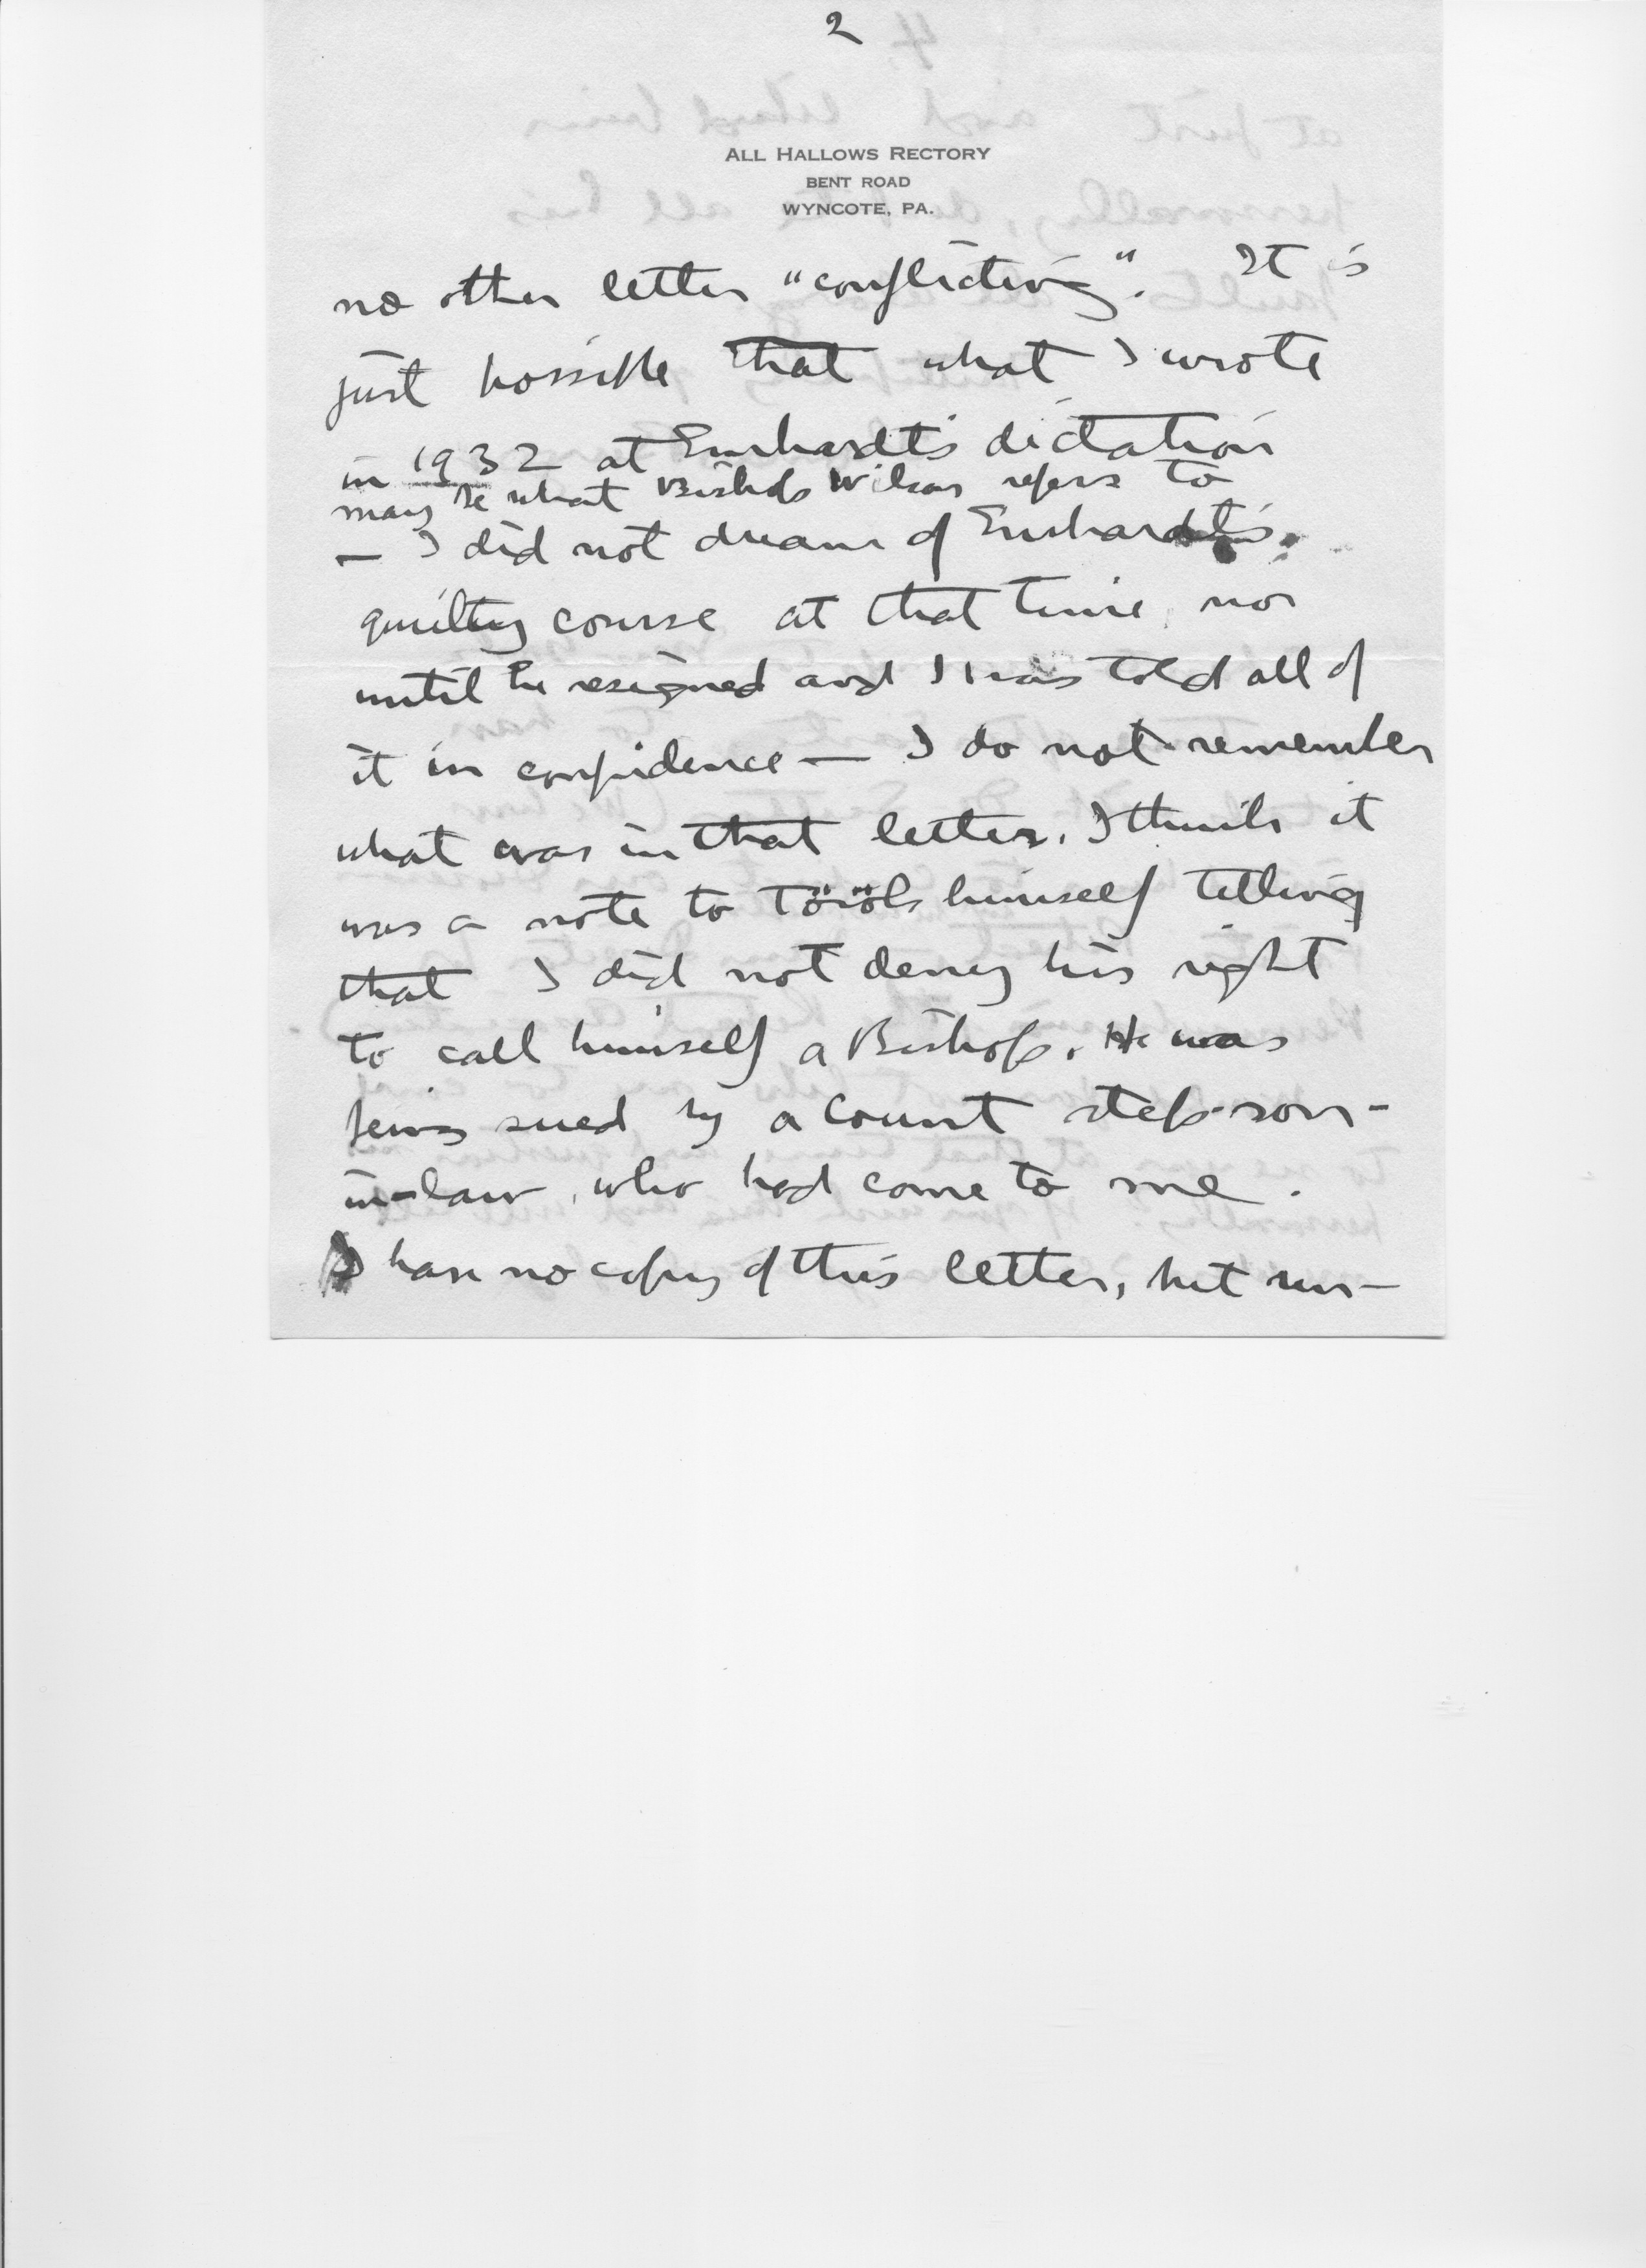 2
ALL HALLOWS RECTORY
BENT ROAD
WYNCOTE, PA.
no other letter "conflicting". It is
just possible that what I wrote
in 1932 at Emhardt's dictation
may be what Bishop Wilson refers to
— I did not dream of Emhardt's
guilty course at that time, nor
until he resigned and I was told all of
it in confidence — I do not remember
what was in that letter. I think it
was a note to Török himself telling
that I did not deny his right
to call himself a Bishop. He was
being sued by a Count step-son-
in-law, who had come to me.
I have no copy of this letter, but un-